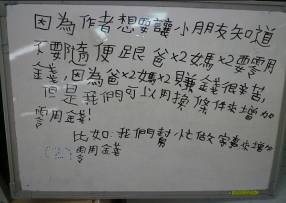 因為作者想要讓小朋友知道
不要隨便跟爸x2媽x2要零用
金錢,因為爸x2媽x2賺金錢很辛苦,
但是我們可以用換條件來增加
零用金錢!
比如:我們幫忙做家事來增加
零用金錢